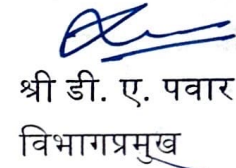 श्री डी. ए. पवार
विभागप्रमुख